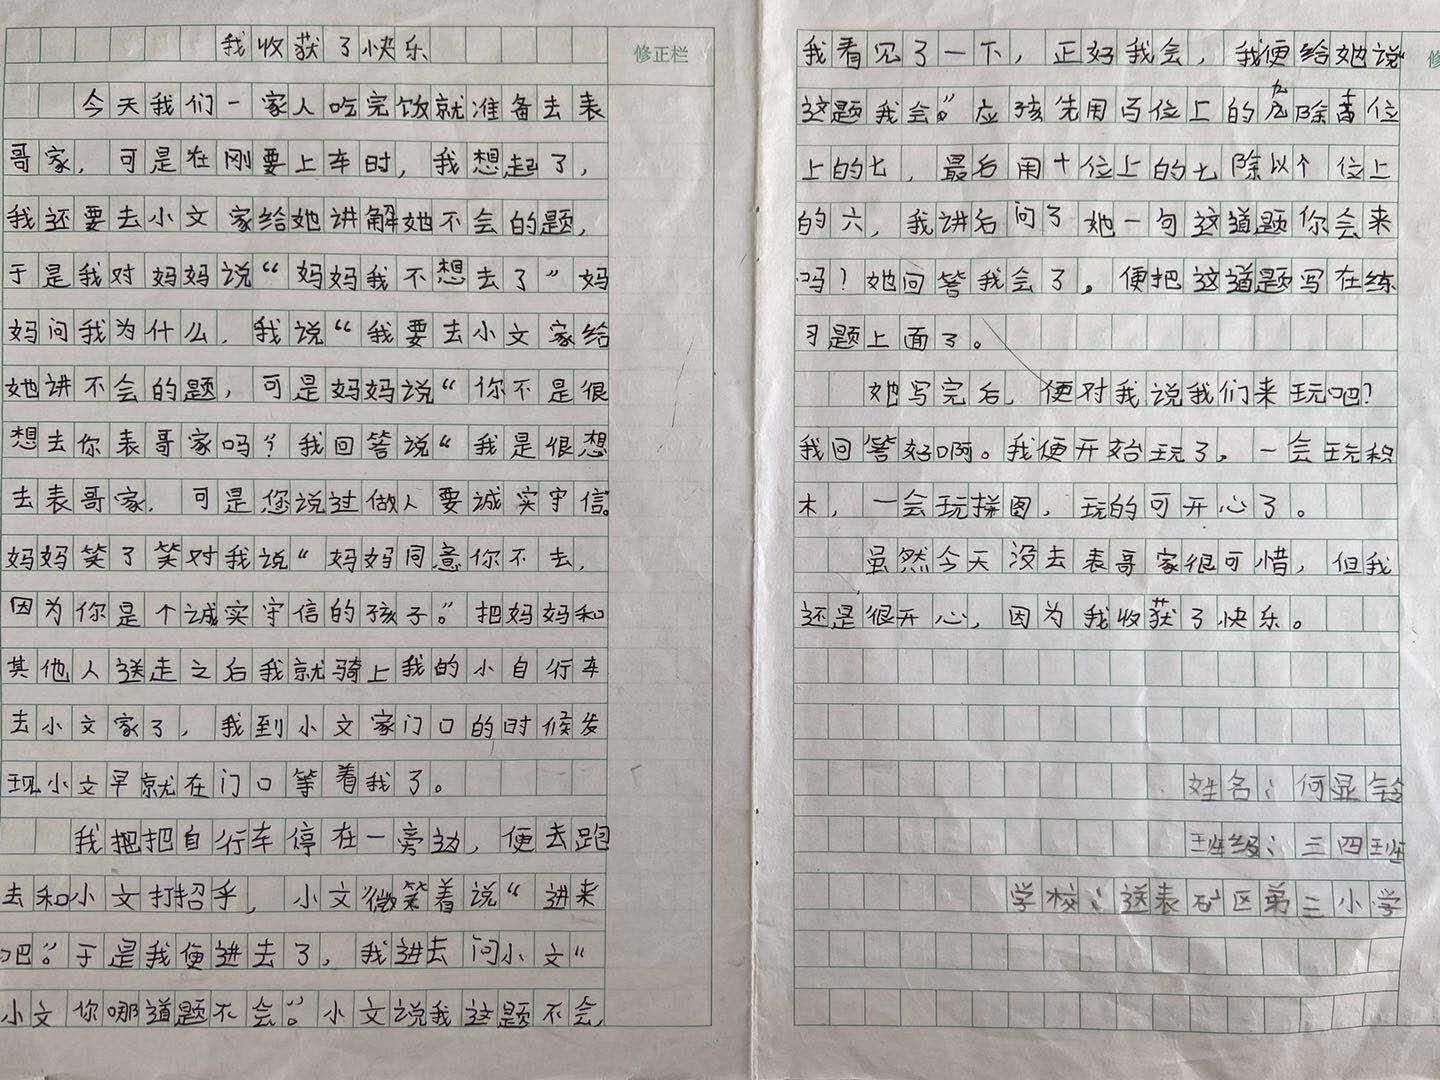 我收获了快乐
修正栏
今天我们一家人吃完饭就准备去表
哥家，可是在刚要上车时，我想起了，
我还要去小文家给她讲解她不会的题，
于是我对妈妈说“妈妈我不想去了”妈
妈问我为什么，我说“我要去小文家给
她讲不会的题，可是妈妈说“你不是很
想去你表哥家吗？我回答说“我是很想
去表哥家，可是您说过做人要诚实守信。
妈妈笑了笑对我说“妈妈同意你不去，
因为你是个诚实守信的孩子。”把妈妈和
其他人送走之后我就骑上我的小自行车
去小文家了，我到小文家门口的时候发
现小文早就在门口等着我了。
我把把自行车停在一旁边，便去跑
去和小文打招乎，小文微笑着说“进来
吧。”于是我便进去了，我进去问小文“
小文你哪道题不会。”小文说我这题不会，
我看见了一下，正好我会，我便给她说“
修
这题我会。”应孩先用百位上的九除百位
上的七，最后用十位上的七除以个位上
的六，我讲后问了她一句这道题你会来
吗！她问答我会了。便把这道题写在练
习题上面了。
她写完后，便对我说我们来玩吧？
我回答好啊。我便开始玩了，一会玩积
木，一会玩拼图，玩的可开心了。
虽然今天没去表哥家很可惜，但我
还是很开心，因为我收获了快乐。
姓名：何显铃
班级：三四班
学校：送表矿区第三小学